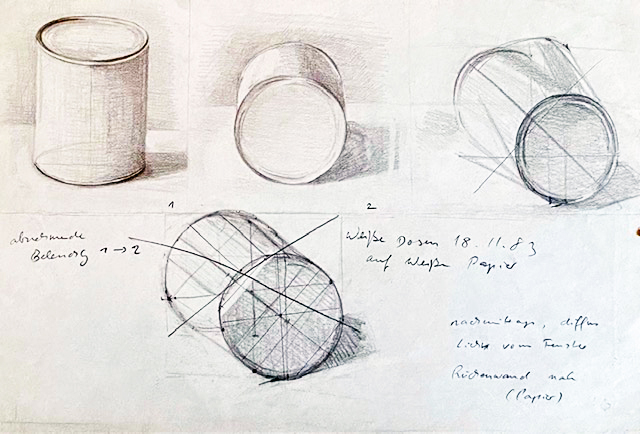 1
2
abnehmende
Belendg 1 → 2
Weiße Dosen 18.11.83
auf weiße Papier
nachmittags, diffus
Licht vom Fenster
Rückenwand nah
(Papier)